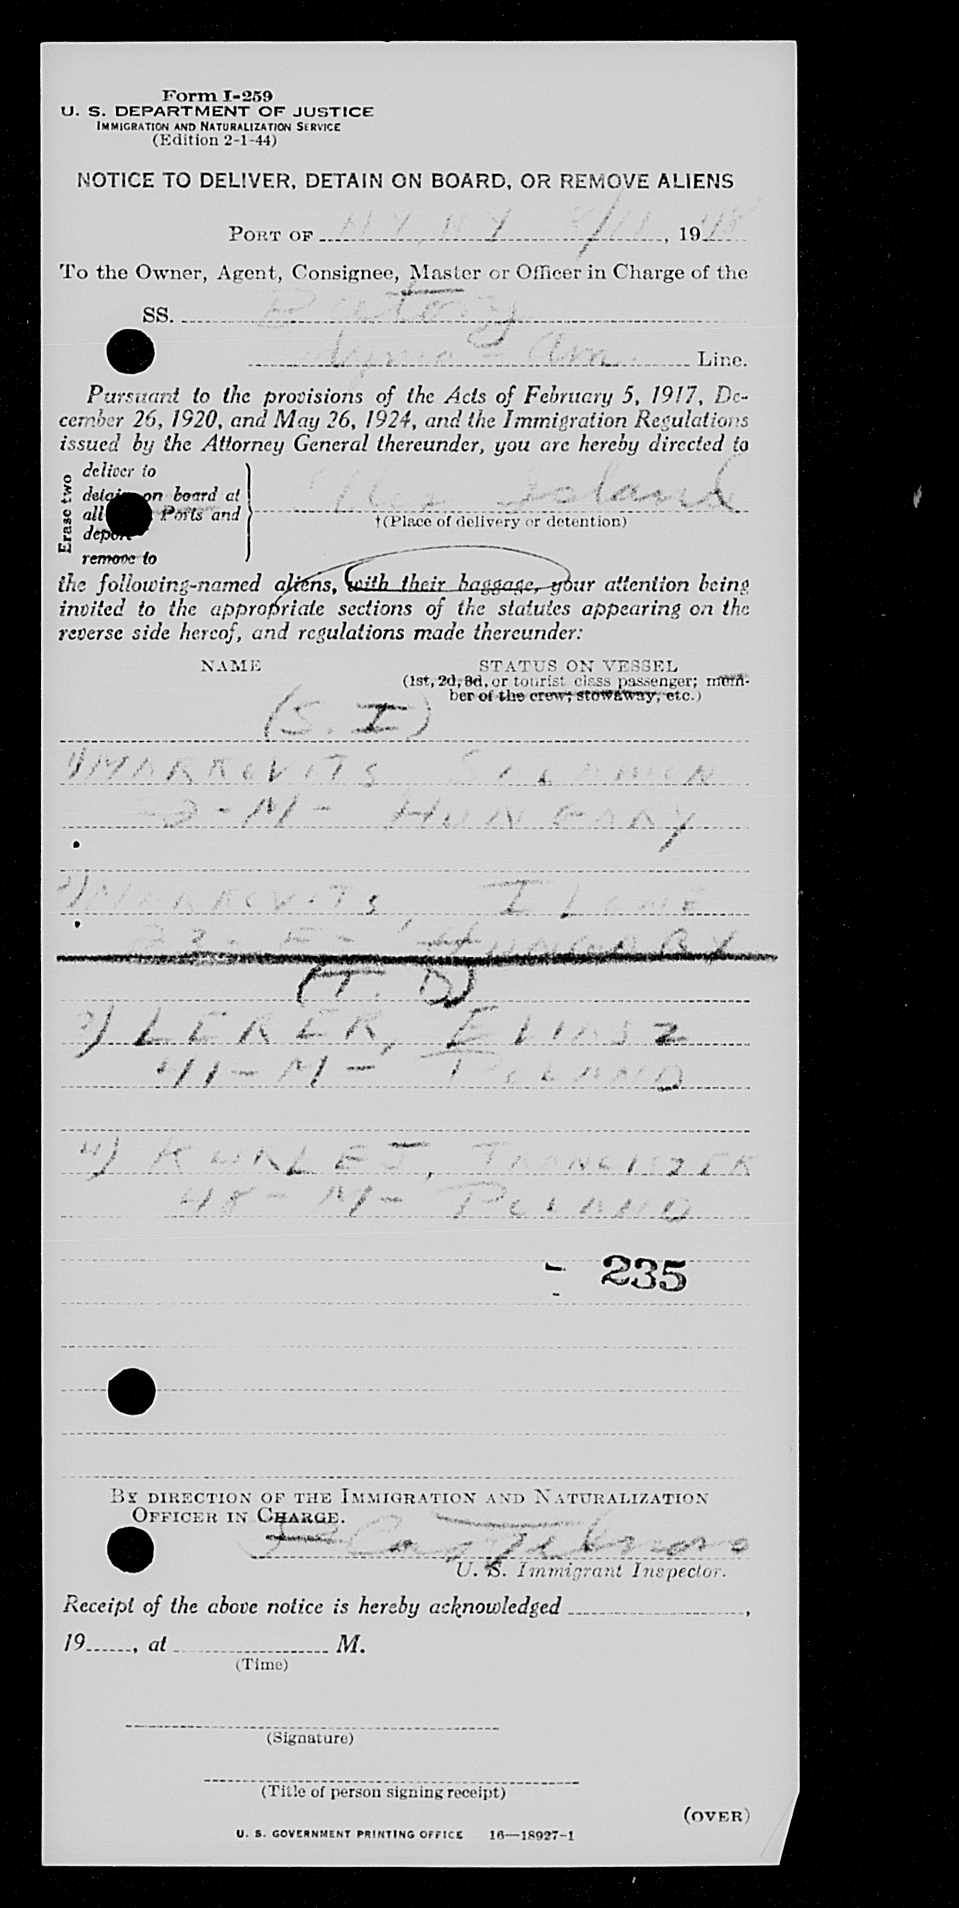 Form I-259
U. S. DEPARTMENT OF JUSTICE
IMMIGRATION AND NATURALIZATION SERVICE
(Edition 2-1-44)
NOTICE TO DELIVER, DETAIN ON BOARD, OR REMOVE ALIENS
PORT OF NY, NY 8/11, 1948
To the Owner, Agent, Consignee, Master or Officer in Charge of the
SS. Batory
Gdynia - Am. Line.
Pursuant to the provisions of the Acts of February 5, 1917, De-
cember 26, 1920, and May 26, 1924, and the Immigration Regulations
issued by the Attorney General thereunder, you are hereby directed to
Erase two
deliver to
detain on board at
all Ports and
deport
remove to
Ellis Island
†(Place of delivery or detention)
the following-named aliens, with their baggage, your attention being
invited to the appropriate sections of the statutes appearing on the
reverse side hereof, and regulations made thereunder:
NAME STATUS ON VESSEL
(1st, 2d, 3d, or tourist class passenger; mem-
ber of the crew; stowaway, etc.)
(S. I)
1) MARKOVITS SALAMON
M - HUNGARY
2) MARKOVITS, ILONE
23 - F - HUNGARY
(T. D)
3) LERER, ELIASZ
41 - M - POLAND
4) KURLEJ, FRANCISZEK
48 - M - POLAND
235
BY DIRECTION OF THE IMMIGRATION AND NATURALIZATION
OFFICER IN CHARGE.
U. S. Immigrant Inspector.
Receipt of the above notice is hereby acknowledged ,
19 , at M.
(Time)
(Signature)
(Title of person signing receipt)
(OVER)
U. S. GOVERNMENT PRINTING OFFICE 16—18927-1